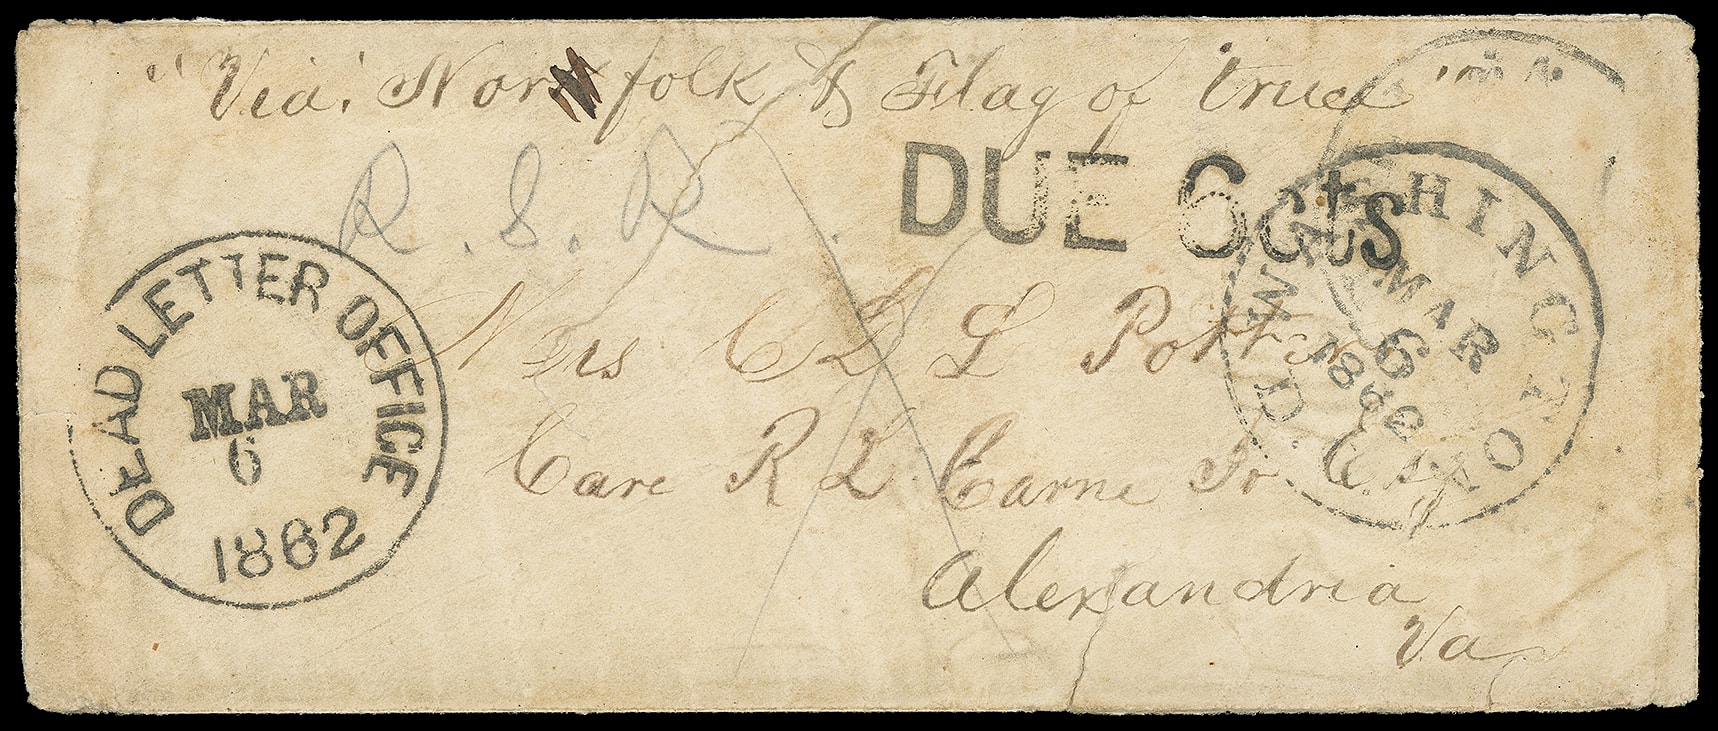 "Via" Norfolk & Flag of truce"
R. S. R.
DUE 6 cts
DEAD LETTER OFFICE
MAR
6
1862
WASHINGTON D.C.
MAR
6
1862
Mrs C D L Potter
Care R L Carne Jr Esq
Alexandria
Va